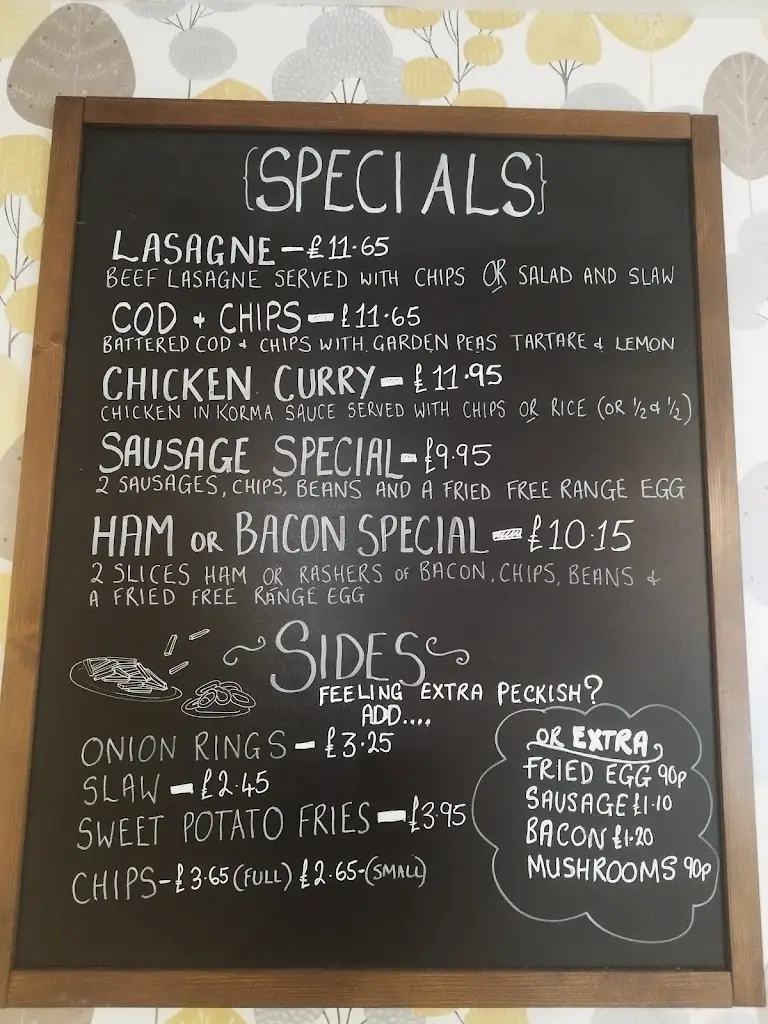 {SPECIALS}
LASAGNE - £11.65
BEEF LASAGNE SERVED WITH CHIPS OR SALAD AND SLAW
COD + CHIPS - £11.65
BATTERED COD + CHIPS WITH GARDEN PEAS TARTARE & LEMON
CHICKEN CURRY - £11.95
CHICKEN IN KORMA SAUCE SERVED WITH CHIPS OR RICE (OR ½ & ½)
SAUSAGE SPECIAL - £9.95
2 SAUSAGES, CHIPS, BEANS AND A FRIED FREE RANGE EGG
HAM OR BACON SPECIAL - £10.15
2 SLICES HAM OR RASHERS OF BACON, CHIPS, BEANS &
A FRIED FREE RANGE EGG
SIDES
FEELING EXTRA PECKISH?
ADD....
ONION RINGS - £3.25
SLAW - £2.45
SWEET POTATO FRIES - £3.95
CHIPS - £3.65 (FULL) £2.65 - (SMALL)
OR EXTRA
FRIED EGG 90p
SAUSAGE £1.10
BACON £1.20
MUSHROOMS 90p